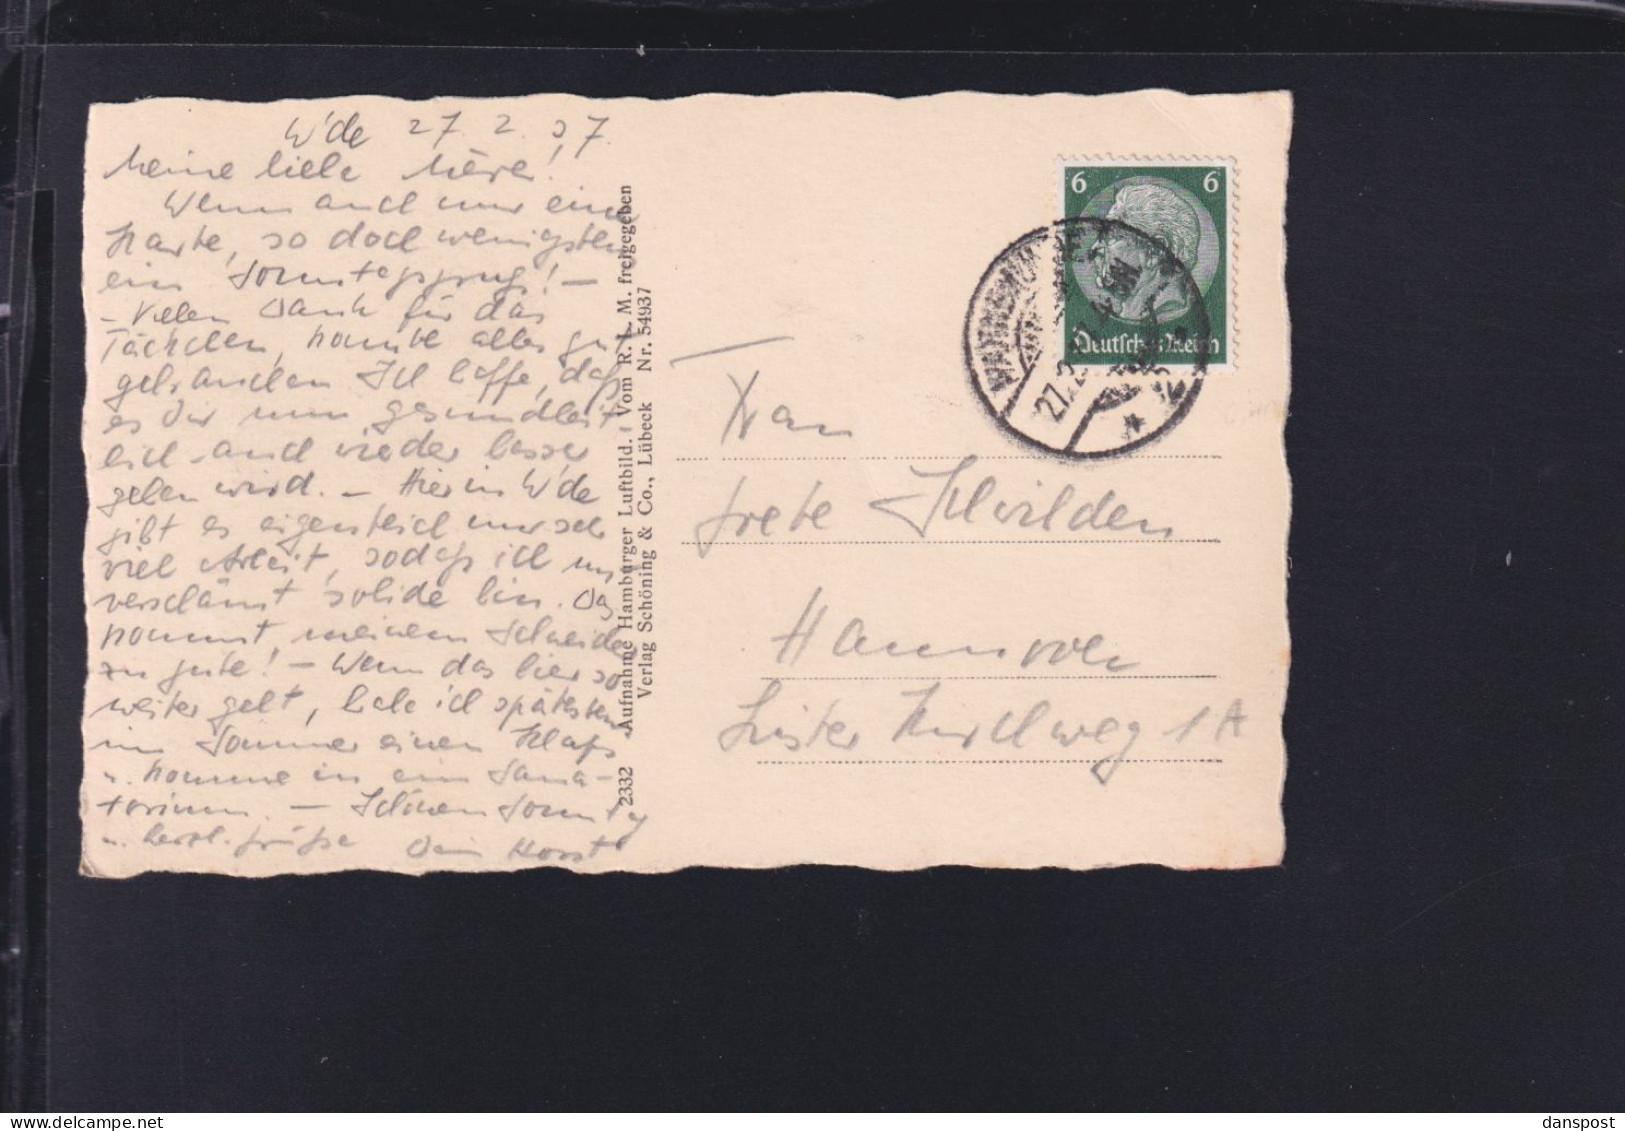 W'de 27. 2. 37.
Meine liebe Mère!
Wenn auch nur eine
Karte, so doch wenigstens
ein Sonntagsgruß! –
– Vielen Dank für das
Päckchen, konnte alles gut
gebrauchen. Ich hoffe, daß
es Dir nun gesundheit
lich auch wieder besser
gehen wird. – Hier in W'de
gibt es eigentlich nur sehr
viel Arbeit, sodaß ich
verschämt solide bin. Das
kommt meinem Schneider
zu gute! – Wenn das hier so
weiter geht, habe ich spätestens
im Sommer einen Klaps
u. komme in ein Sana-
torium. – Schönen Sonntag
u. herzl. Grüße Dein Horst
2332 Aufnahme Hamburger Luftbild. Vom R. L. M. freigegeben
Verlag Schöning & Co., Lübeck Nr. 54937
6 6
Deutsches Reich
WARNEMÜNDE
27.2.
Frau
Grete Schwilden
Hannover
Lister Kirchweg 1 A
danspost